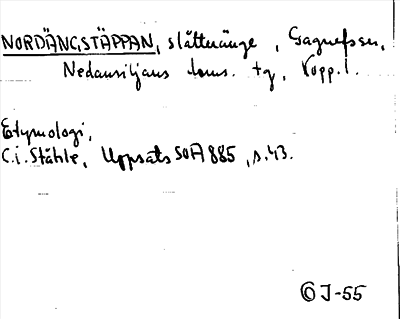 NORDÄNGSTÄPPAN, slåtteränge, Gagnefs sn,
Nedansiljans doms. tg, Kopp. l.
Etymologi,
C.i. Ståhle, Uppsats SOA 885, s. 43.
© J-55